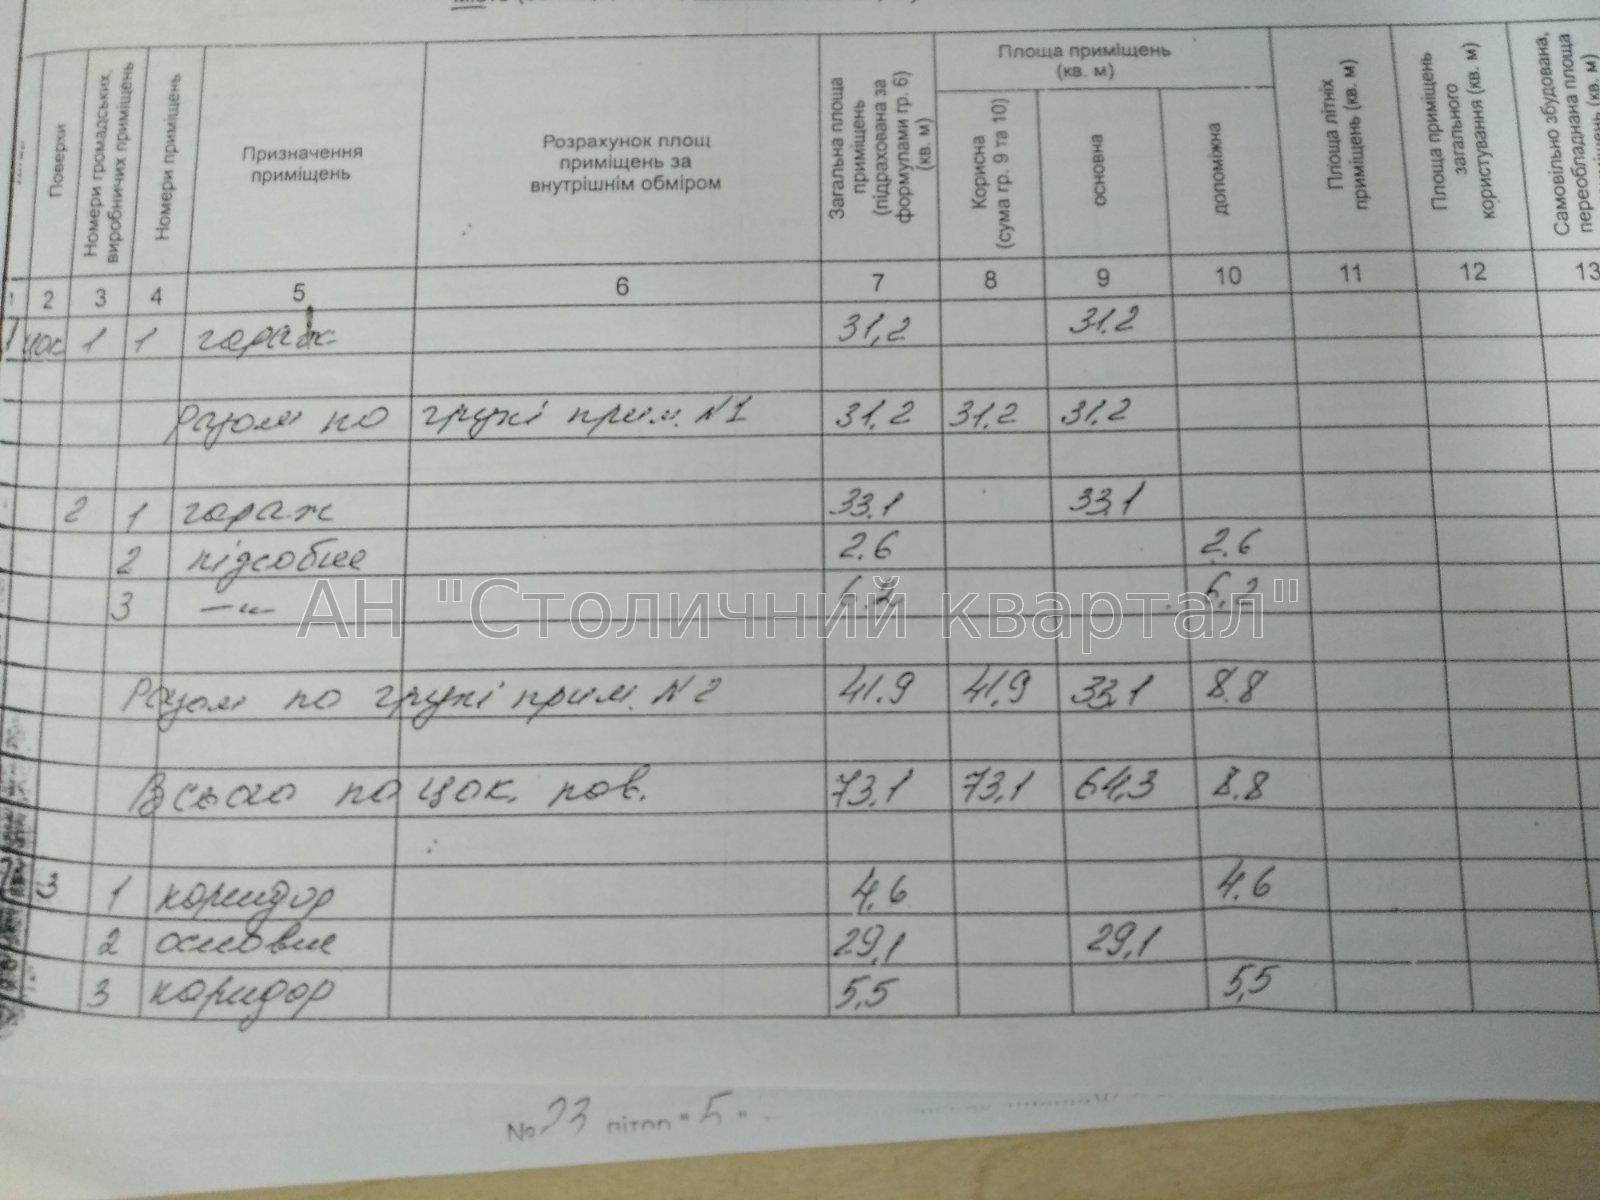 Поверхи
Номери громадських, виробничих приміщень
Номери приміщень
Призначення приміщень
Розрахунок площ приміщень за внутрішнім обміром
Загальна площа приміщень (підрахована за формулами гр. 6) (кв. м)
Площа приміщень (кв. м)
Корисна (сума гр. 9 та 10)
основна
допоміжна
Площа літніх приміщень (кв. м)
Площа приміщень загального користування (кв. м)
Самовільно збудована, переобладнана площа
2 3 4 5 6 7 8 9 10 11 12 13
цок 1 1 гараж 31,2 31.2
Разом по групі прим. №1 31.2 31.2 31.2
2 1 гараж 33.1 33.1
2 підсобне 2.6 2.6
3 —"— 6.2 6,2
АН "Столичний квартал"
Разом по групі прим. №2 41.9 41.9 33.1 8.8
Всього по цок. пов. 73,1 73,1 64,3 8.8
3 1 коридор 4,6 4.6
2 основне 29,1 29,1
3 коридор 5,5 5,5
№ 23 літер "Б"